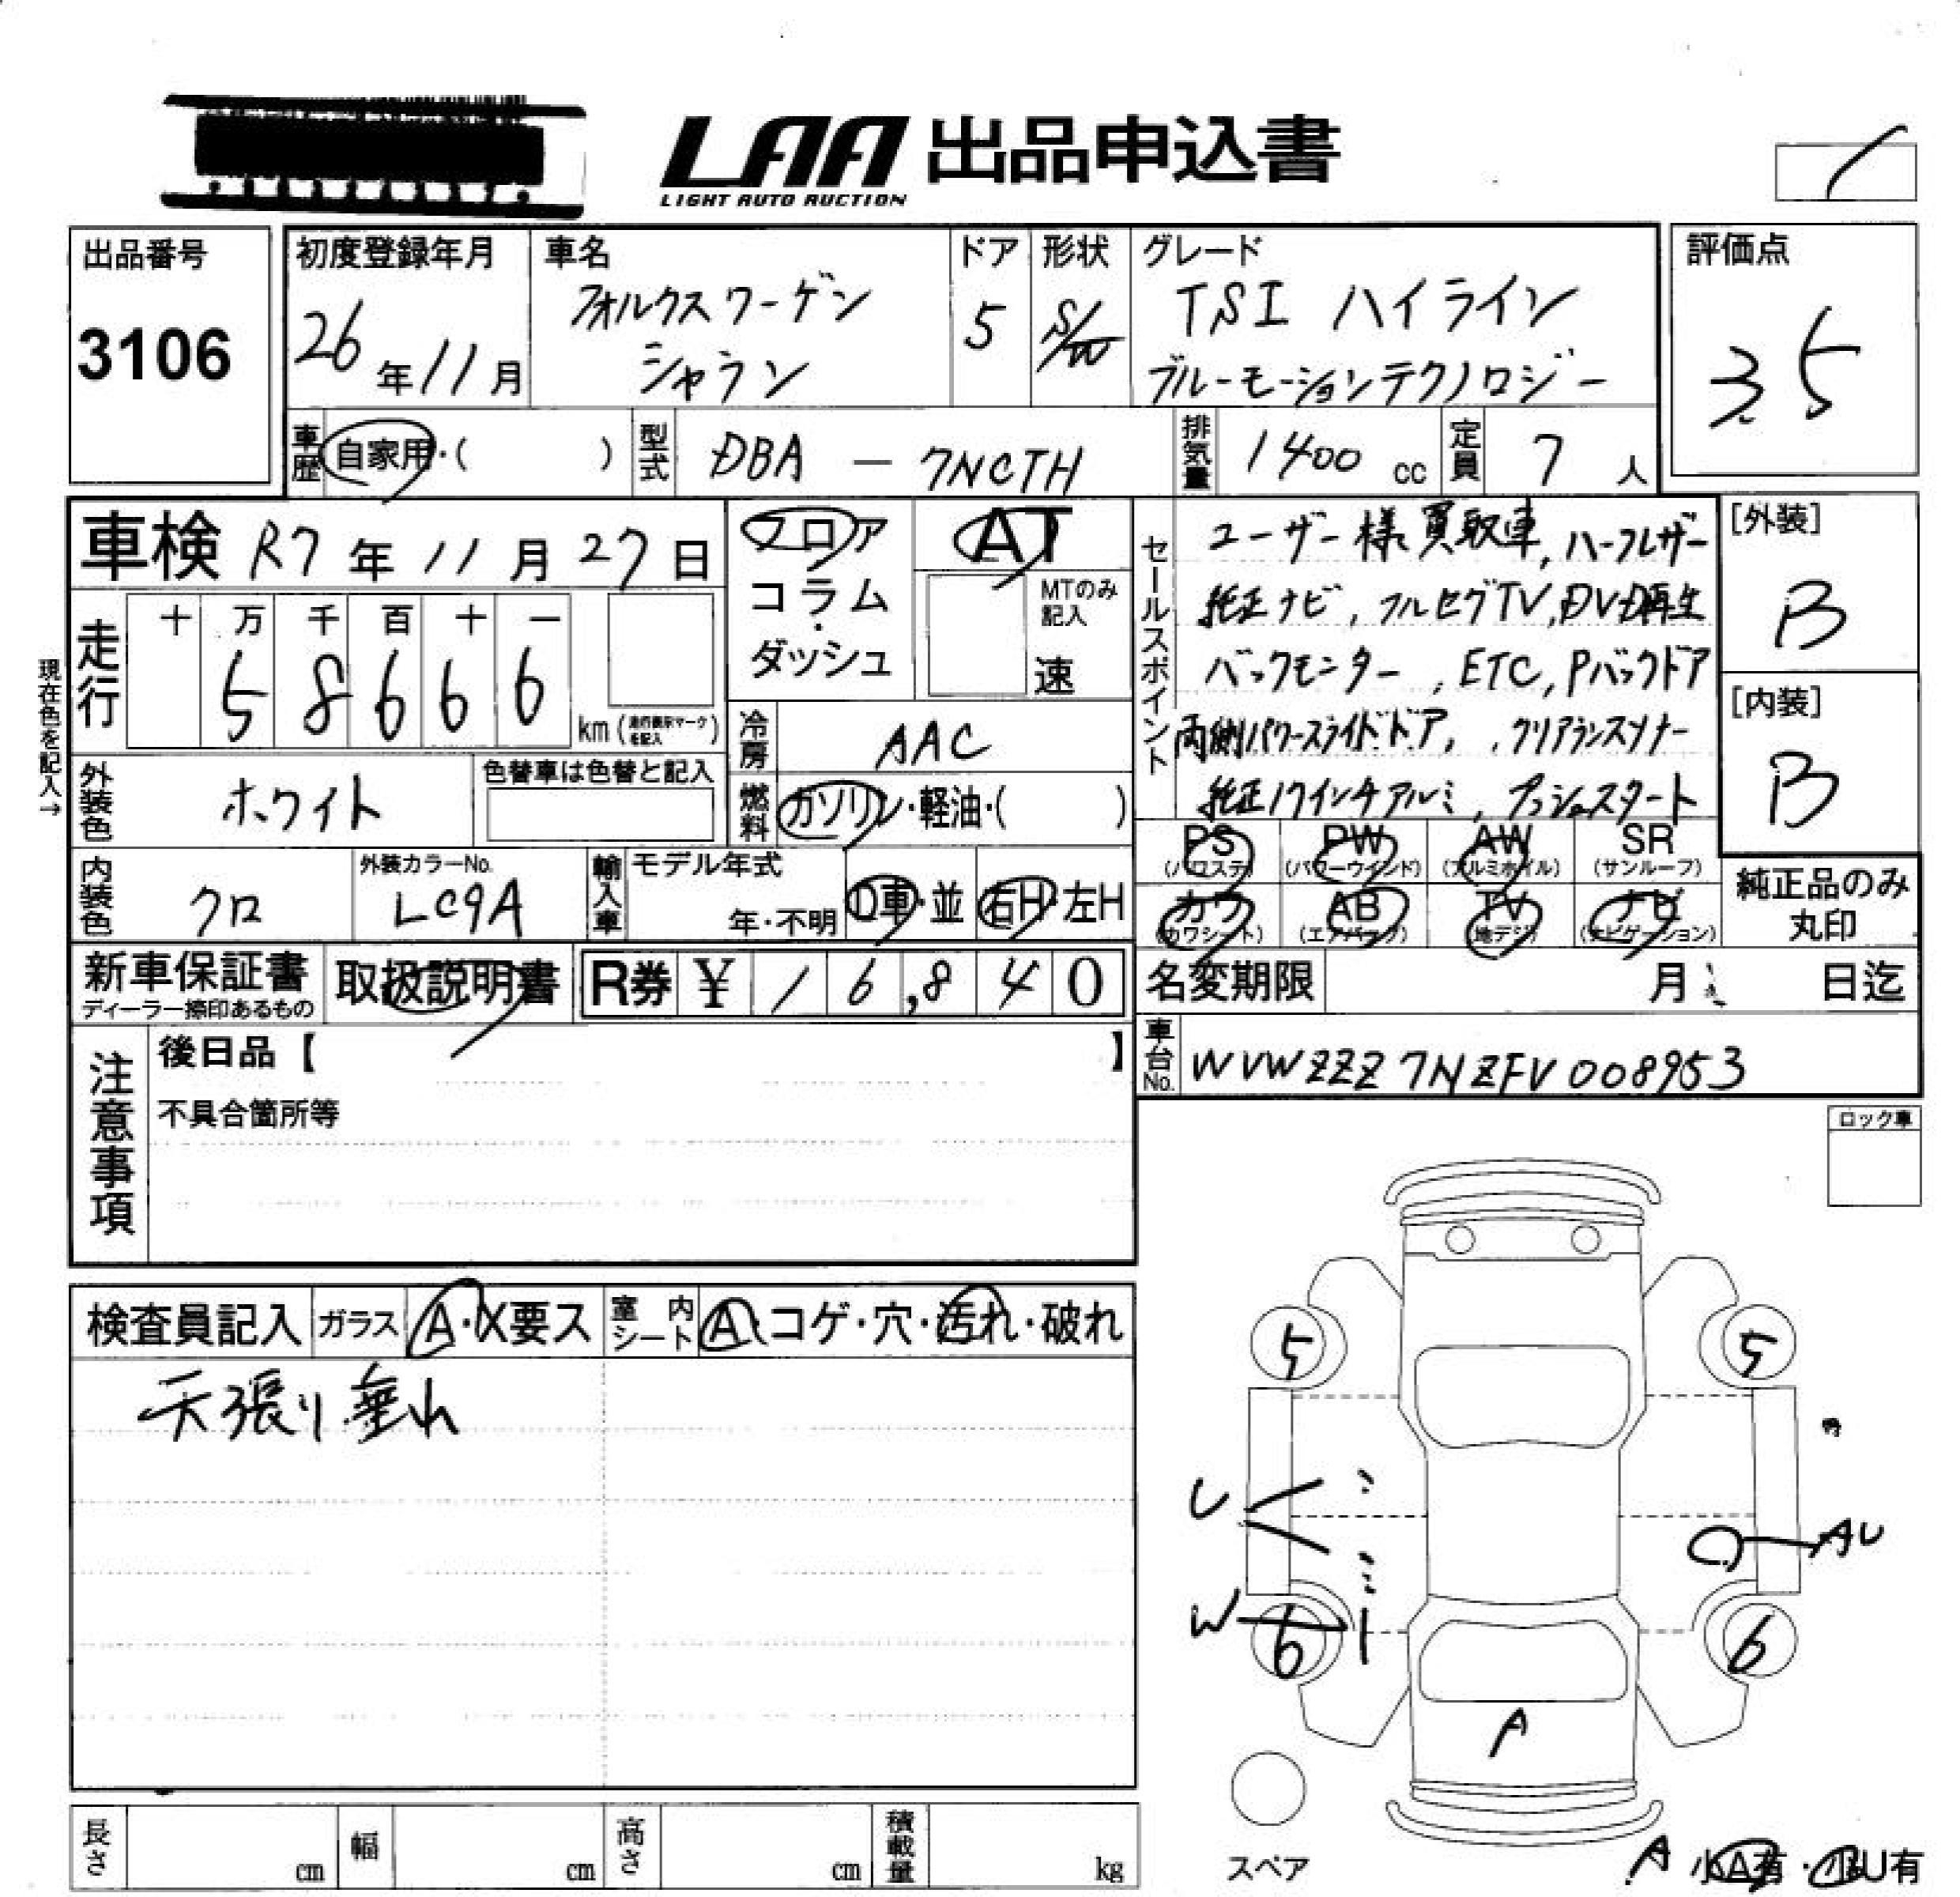 LAA 出品申込書
LIGHT AUTO AUCTION
出品番号
3106
初度登録年月
26年11月
車名
フォルクスワーゲン
シャラン
ドア
5
形状
S/W
グレード
TSI ハイライン
ブルーモーションテクノロジー
評価点
3.5
車歴 自家用・( )
型式 DBA － 7NCTH
排気量 1400 cc
定員 7 人
車検 R7年11月27日
フロア
コラム
・
ダッシュ
AT
MTのみ
記入
速
セールスポイント
ユーザー様買取車, ハーフレザー
純正ナビ, フルセグTV, DVD再生
バックモニター, ETC, Pバックドア
両側パワースライドドア, クリアランスソナー
純正17インチアルミ, プッシュスタート
[外装]
B
[内装]
B
現在色を記入→
走行
十 万 千 百 十 一
5 8 6 6 6
km (走行表示マークを記入)
冷房 AAC
外装色 ホワイト
色替車は色替と記入
燃料 ガソリン・軽油・( )
PS
(パワステ)
PW
(パワーウインド)
AW
(アルミホイル)
SR
(サンルーフ)
カワ
(カワシート)
AB
(エアバッグ)
TV
(地デジ)
ナビ
(ナビゲーション)
純正品のみ
丸印
内装色 クロ
外装カラーNo.
LC9A
輸入車
モデル年式
年・不明
D車・並
右H・左H
新車保証書
ディーラー捺印あるもの
取扱説明書
R券 ¥ 16,840
名変期限 月 日迄
車台No. WVWZZZ7NZFV008953
注意事項
後日品【 】
不具合箇所等
ロック車
検査員記入
ガラス A・X要ス
室内シート A・コゲ・穴・汚れ・破れ
天張り垂れ
5
5
U
AU
W
6
6
A
スペア
長さ cm
幅 cm
高さ cm
積載量 kg
A 小A有・小U有